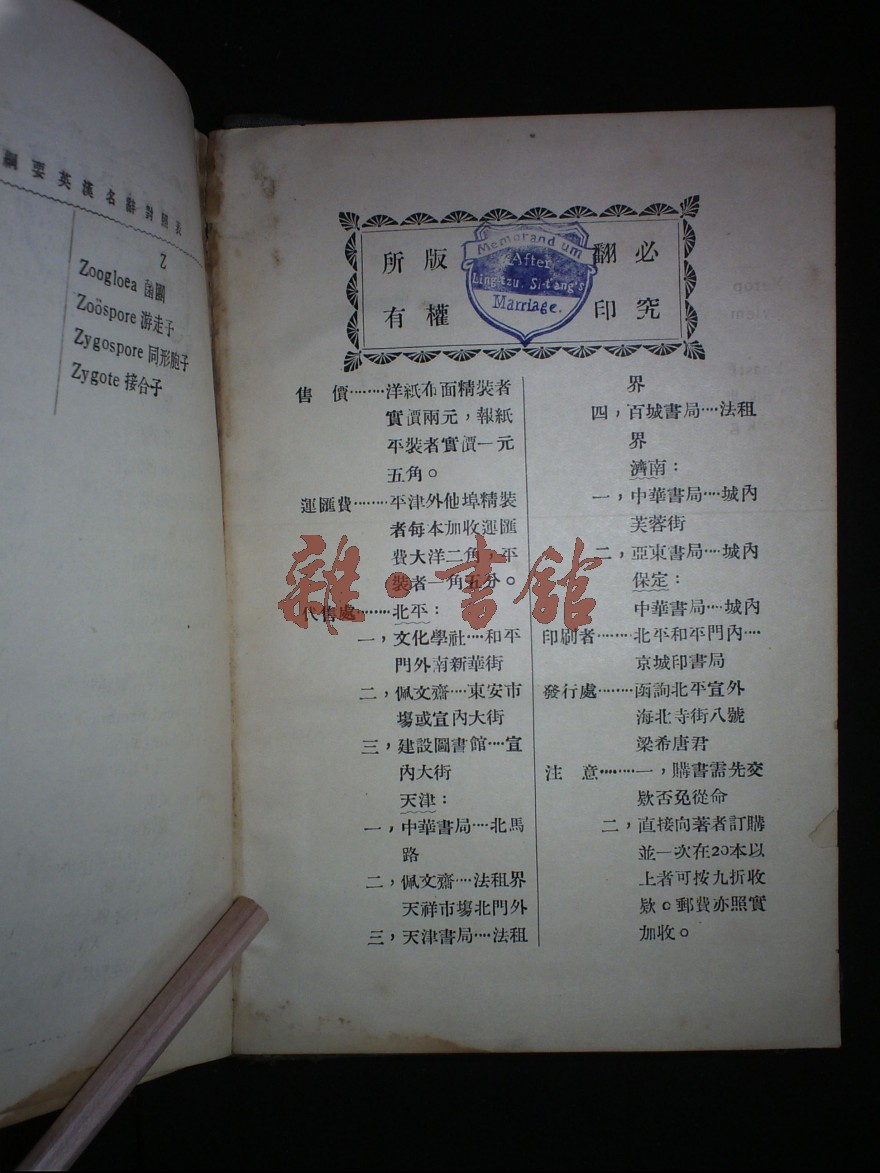 綱要英漢名辭對照表
Z
Zoogloea 菌團
Zoöspore 游走子
Zygospore 同形胞子
Zygote 接合子
所版 翻必
有權 印究
Memorandum
After
Ling-tzu, Si-t'ang's
Marriage.
售 價········洋紙布面精裝者
實價兩元，報紙
平裝者實價一元
五角。
運匯費········平津外他埠精裝
者每本加收運匯
費大洋二角，平
裝者一角五分。
代售處········北平：
一，文化學社····和平
門外南新華街
二，佩文齋····東安市
場或宣內大街
三，建設圖書館····宣
內大街
天津：
一，中華書局····北馬
路
二，佩文齋····法租界
天祥市場北門外
三，天津書局····法租
界
四，百城書局····法租
界
濟南：
一，中華書局····城內
芙蓉街
二，亞東書局····城內
保定：
中華書局····城內
印刷者········北平和平門內····
京城印書局
發行處········函詢北平宣外
海北寺街八號
梁希唐君
注 意········一，購書需先交
欵否免從命
二，直接向著者訂購
並一次在20本以
上者可按九折收
欵。郵費亦照實
加收。
雜·書館